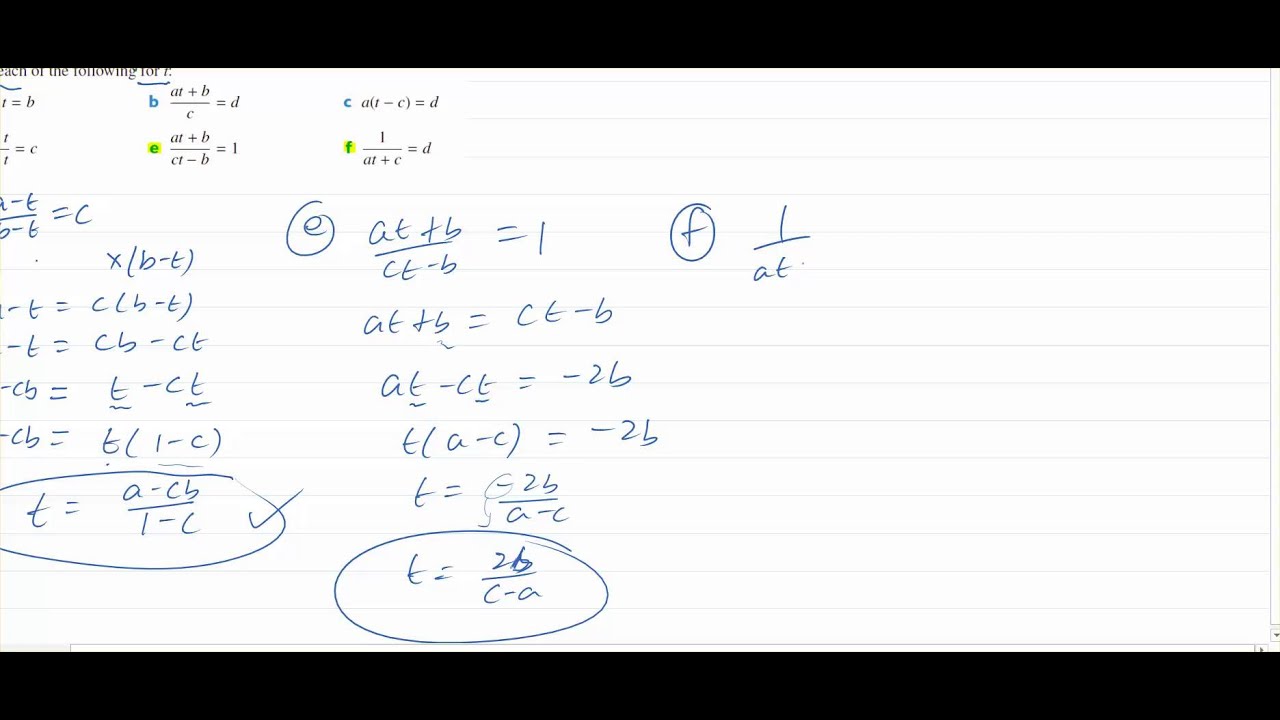 each of the following for t:
t = b
b (at + b)/c = d
c a(t − c) = d
t/t = c
e (at + b)/(ct − b) = 1
f 1/(at + c) = d
a-t/b-t = c
×(b-t)
-t = c(b-t)
-t = cb-ct
-cb = t-ct
-cb = t(1-c)
t = (a-cb)/(1-c)
e (at+b)/(ct-b) = 1
at+b = ct-b
at-ct = -2b
t(a-c) = -2b
t = -2b/(a-c)
t = 2b/(c-a)
f 1/at